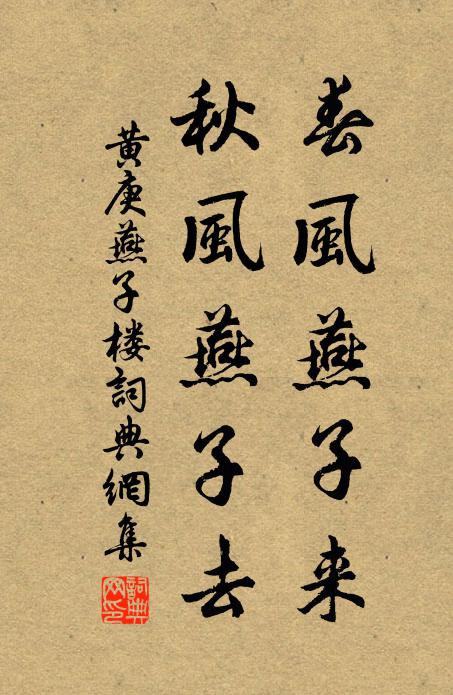 春風燕子来
秋風燕子去
黄庚燕子楼詞典網集
詞典網印